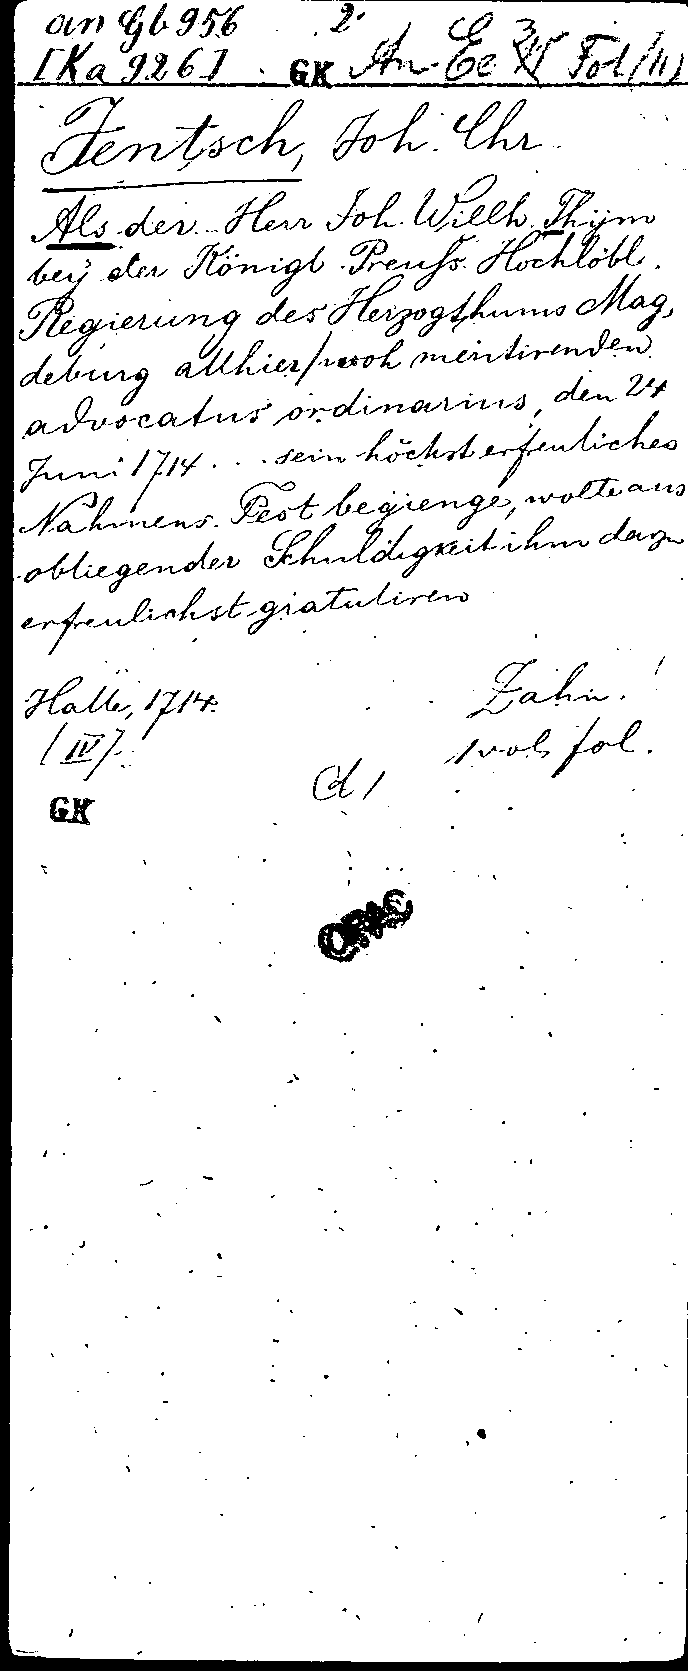 an Gb 956 2°
[Ka 926] GK An Ee Fol (11)
Jentsch, Joh. Chr.
Als der Herr Joh. Willh. Thym
bey der Königl. Preuss. Hochlöbl.
Regierung des Herzogthums Mag,
deburg allhier/woh meritirenden
advocatus ordinarius, den 24
Juni 1714 ... sein höchst erfreuliches
Nahmens. Fest begienge, wolte aus
obliegender Schuldigkeit ihm dazu
erfreulichst gratuliren
Halle, 1714. Zahn.
[IV]. 1 vol. fol.
GK
OPAC